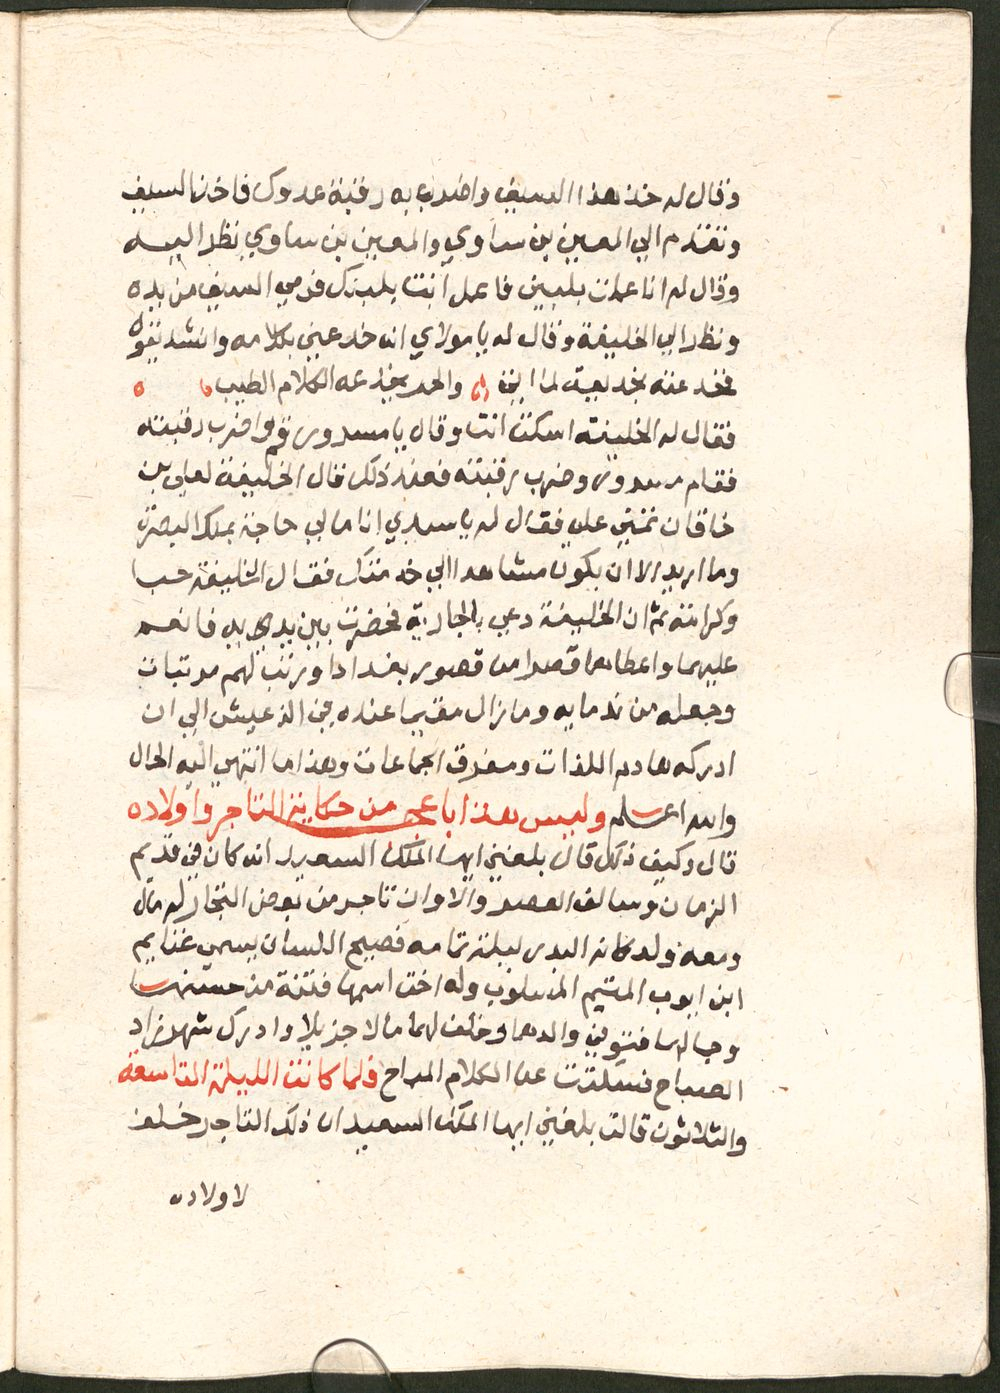 وقال له خذ هذا السيف واضرب به رقبة عدوك فاخذ السيف
وتقدم الي المعين بن ساوي والمعين بن ساوي نظر اليه
وقال له انا عملت بلبني فاعمل انت بلبنك فرمي السيف من يده
ونظر الي الخليفة وقال له يا مولاي انه خدعني بكلامه وانشد يقول
فخدعته بخديعة لما اتي والحر يخدعه الكلام الطيب
فقال له الخليفة اسكت انت وقال يا مسرور قم واضرب رقبته
فقام مسرور وضرب رقبته فعند ذلك قال الخليفة لعلي بن
خاقان تمني علي فقال له يا سيدي انا مالي حاجة بملك البصرة
وما اريد الا ان يكون مشاهدا الي خدمتك فقال الخليفة حبا
وكرامة ثم ان الخليفة دعي بالجارية فحضرت بين يديه فانعم
عليهما واعطاهما قصرا من قصور بغداد ورتب لهم مرتبات
وجعله من ندمايه ومازال مقيما عنده في الذ عيش الي ان
ادركه هادم اللذات ومفرق الجماعات وهذا ما انتهي اليه الحال
والله اعلم وليس هذا باعجب من حكاية التاجر واولاده
قال وكيف ذلك قال بلغني ايها الملك السعيد انه كان في قديم
الزمان وسالف العصر والاوان تاجر من بعض التجار له مال
ومعه ولد كانه البدر ليلة تمامه فصيح اللسان يسمي غنايم
ابن ايوب المتيم المسلوب وله اخت اسمها فتنة من حسنها
وجمالها فتوفي والدهما وخلف لهما مالا جزيلا وادرك شهرزاد
الصباح فسكتت عن الكلام المباح فلما كانت الليلة التاسعة
والثلاثون قالت بلغني ايها الملك السعيد ان ذلك التاجر خلف
لاولاده